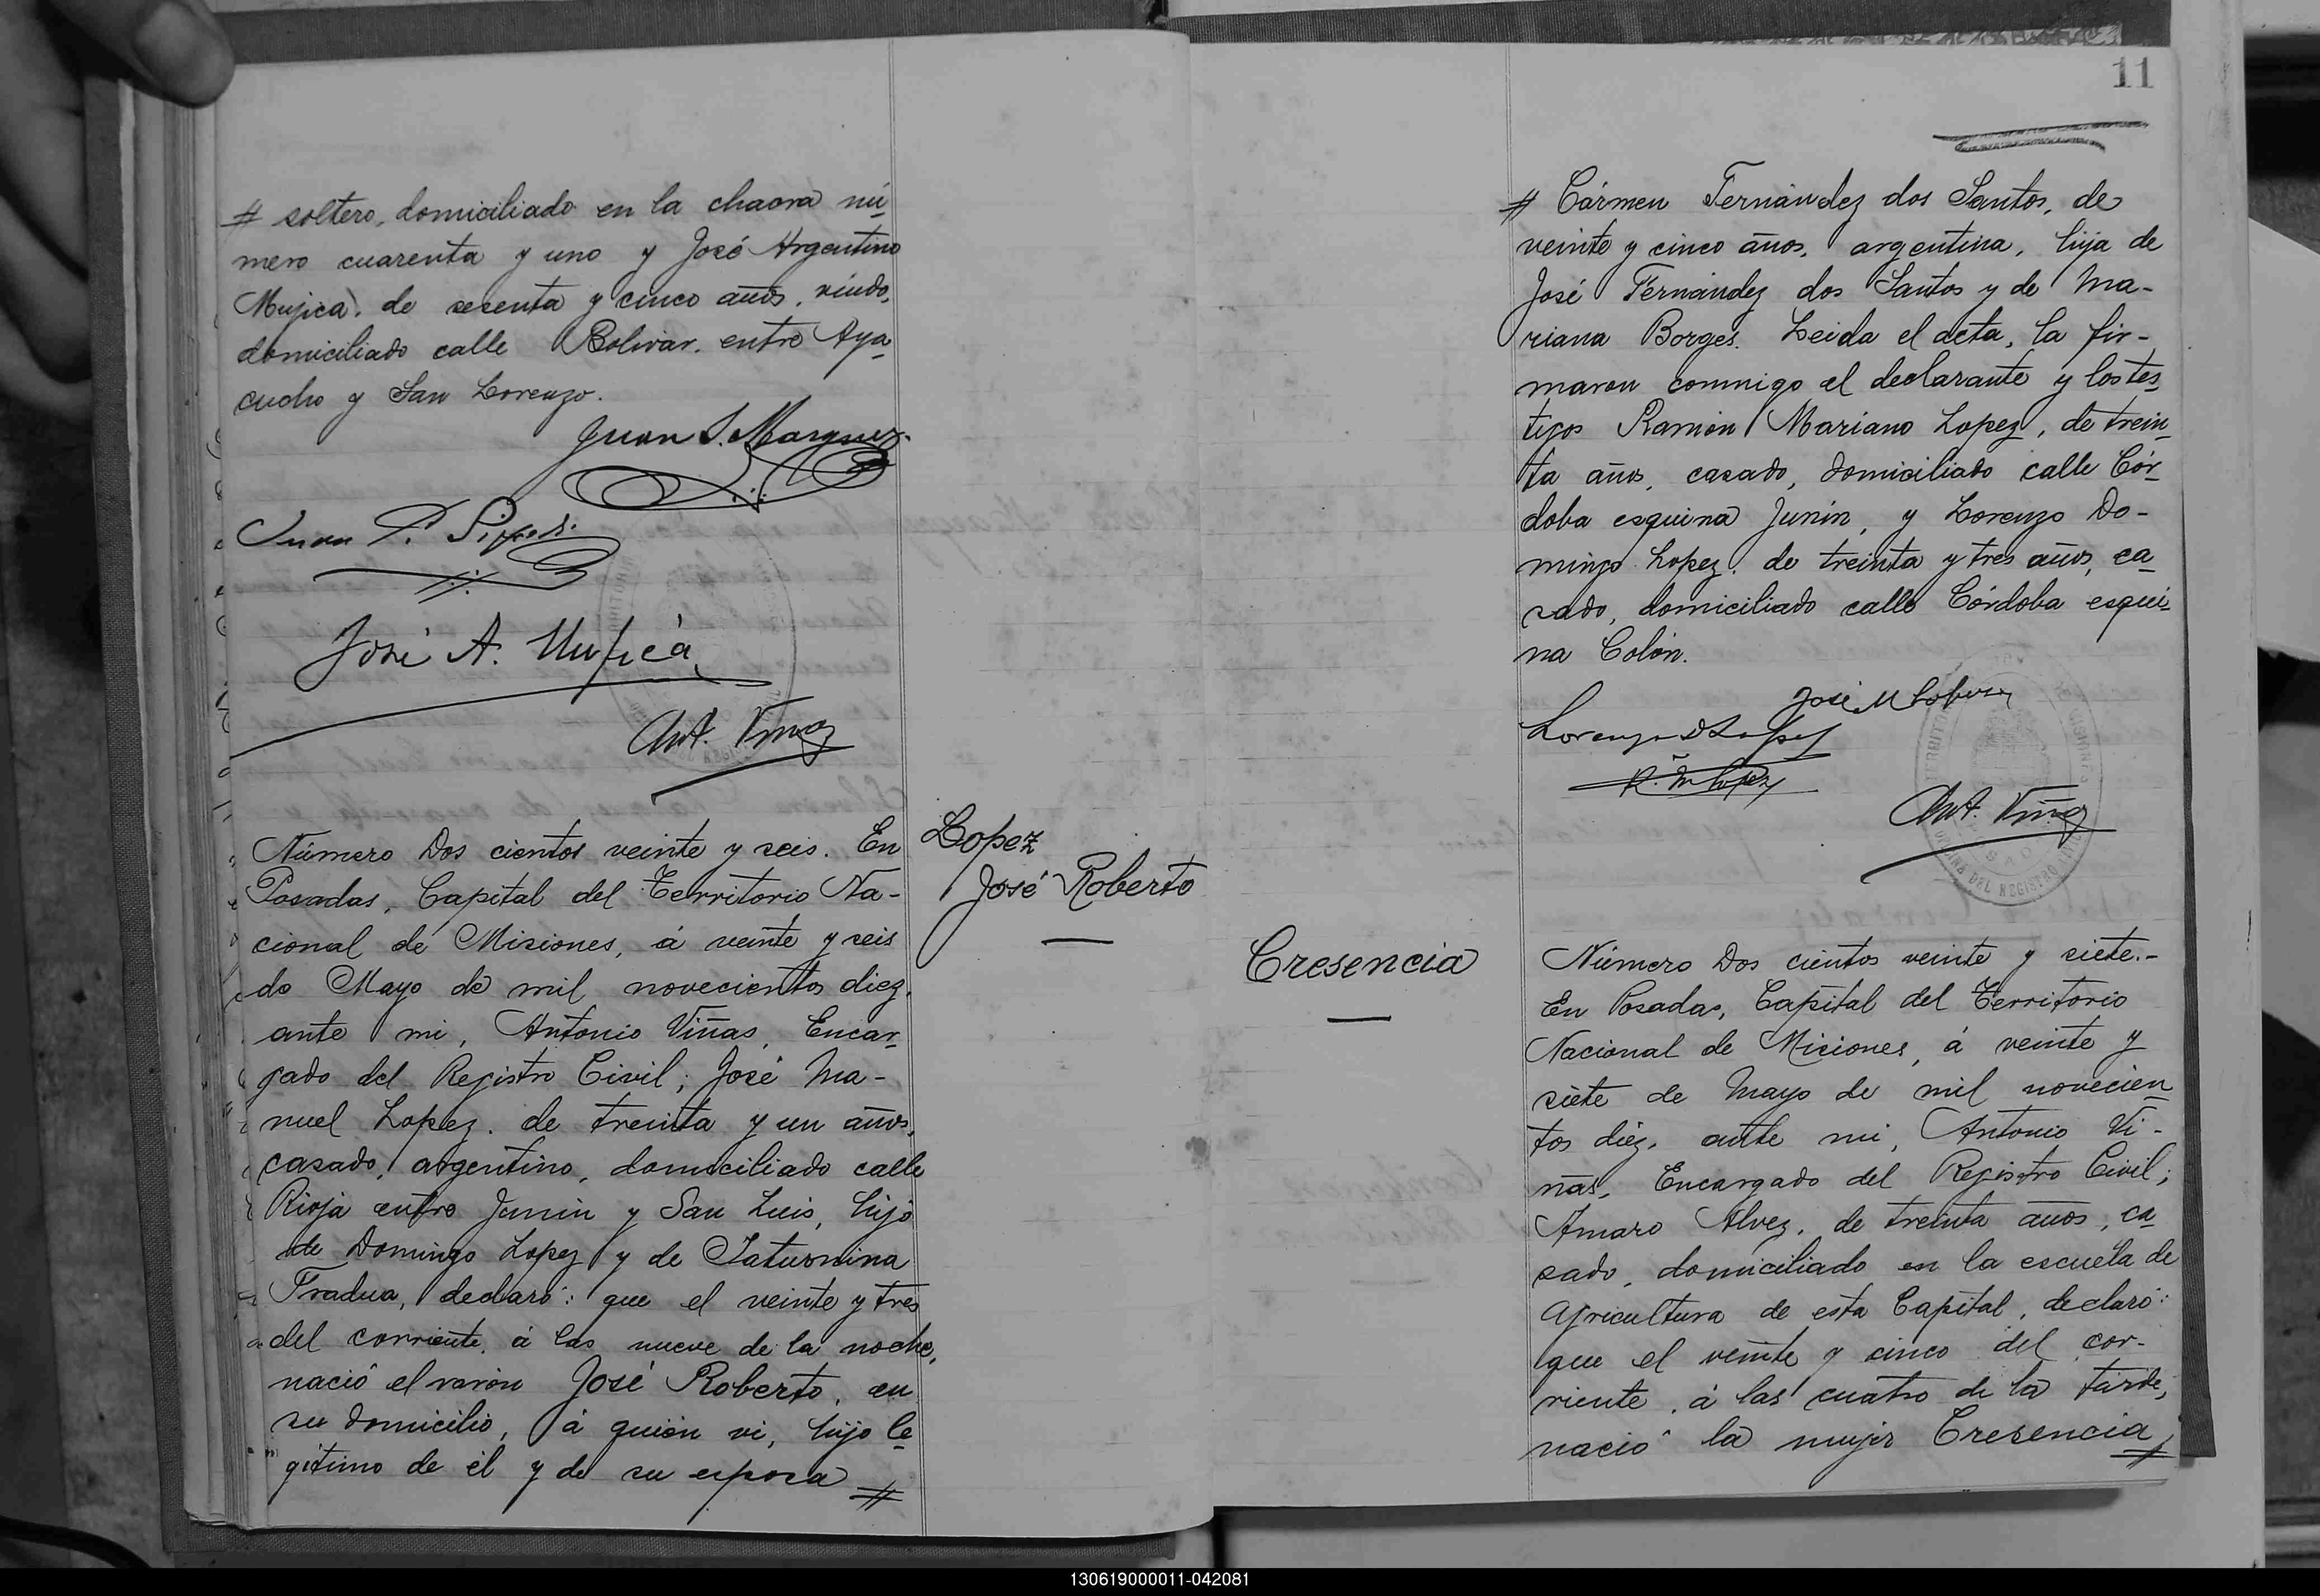 # soltero, domiciliado en la chacra nú-
mero cuarenta y uno y José Argentino
Mujica, de sesenta y cinco años, viudo,
domiciliado calle Bolivar, entre Aya-
cucho y San Lorenzo.
Juan S. Marquez
Juan P.
José A. Mujica
Ant. Viñas
Lopez
José Roberto
Número Dos cientos veinte y seis. En
Posadas, Capital del Territorio Na-
cional de Misiones, á veinte y seis
de Mayo de mil novecientos diez,
ante mi, Antonio Viñas, Encar-
gado del Registro Civil; José Ma-
nuel Lopez, de treinta y un años,
casado, argentino, domiciliado calle
Rioja entre Junin y San Luis, hijo
de Domingo Lopez y de Saturnina
Fradua, declaró: que el veinte y tres
del corriente, á las nueve de la noche,
nació el varón José Roberto, en
su domicilio, á quién vi, hijo le-
gítimo de él y de su esposa #
11
# Cármen Fernández dos Santos, de
veinte y cinco años, argentina, hija de
José Fernández dos Santos y de Ma-
riana Borges. Leida el acta, la fir-
maron conmigo el declarante y los tes-
tigos Ramón Mariano Lopez, de trein-
ta años, casado, domiciliado calle Cór-
doba esquina Junín, y Lorenzo Do-
mingo Lopez, de treinta y tres años, ca-
sado, domiciliado calle Córdoba esqui-
na Colón.
José M Lopez
Lorenzo D Lopez
R. M Lopez
Ant. Viñas
Cresencia
Número Dos cientos veinte y siete.-
En Posadas, Capital del Territorio
Nacional de Misiones, á veinte y
siete de Mayo de mil novecien-
tos diéz, ante mi, Antonio Vi-
ñas, Encargado del Registro Civil;
Amaro Alvez, de treinta años, ca-
sado, domiciliado en la escuela de
Agricultura de esta Capital, declaró:
que el veinte y cinco del cor-
riente, á las cuatro de la tarde,
nació la mujer Cresencia #
130619000011-042081